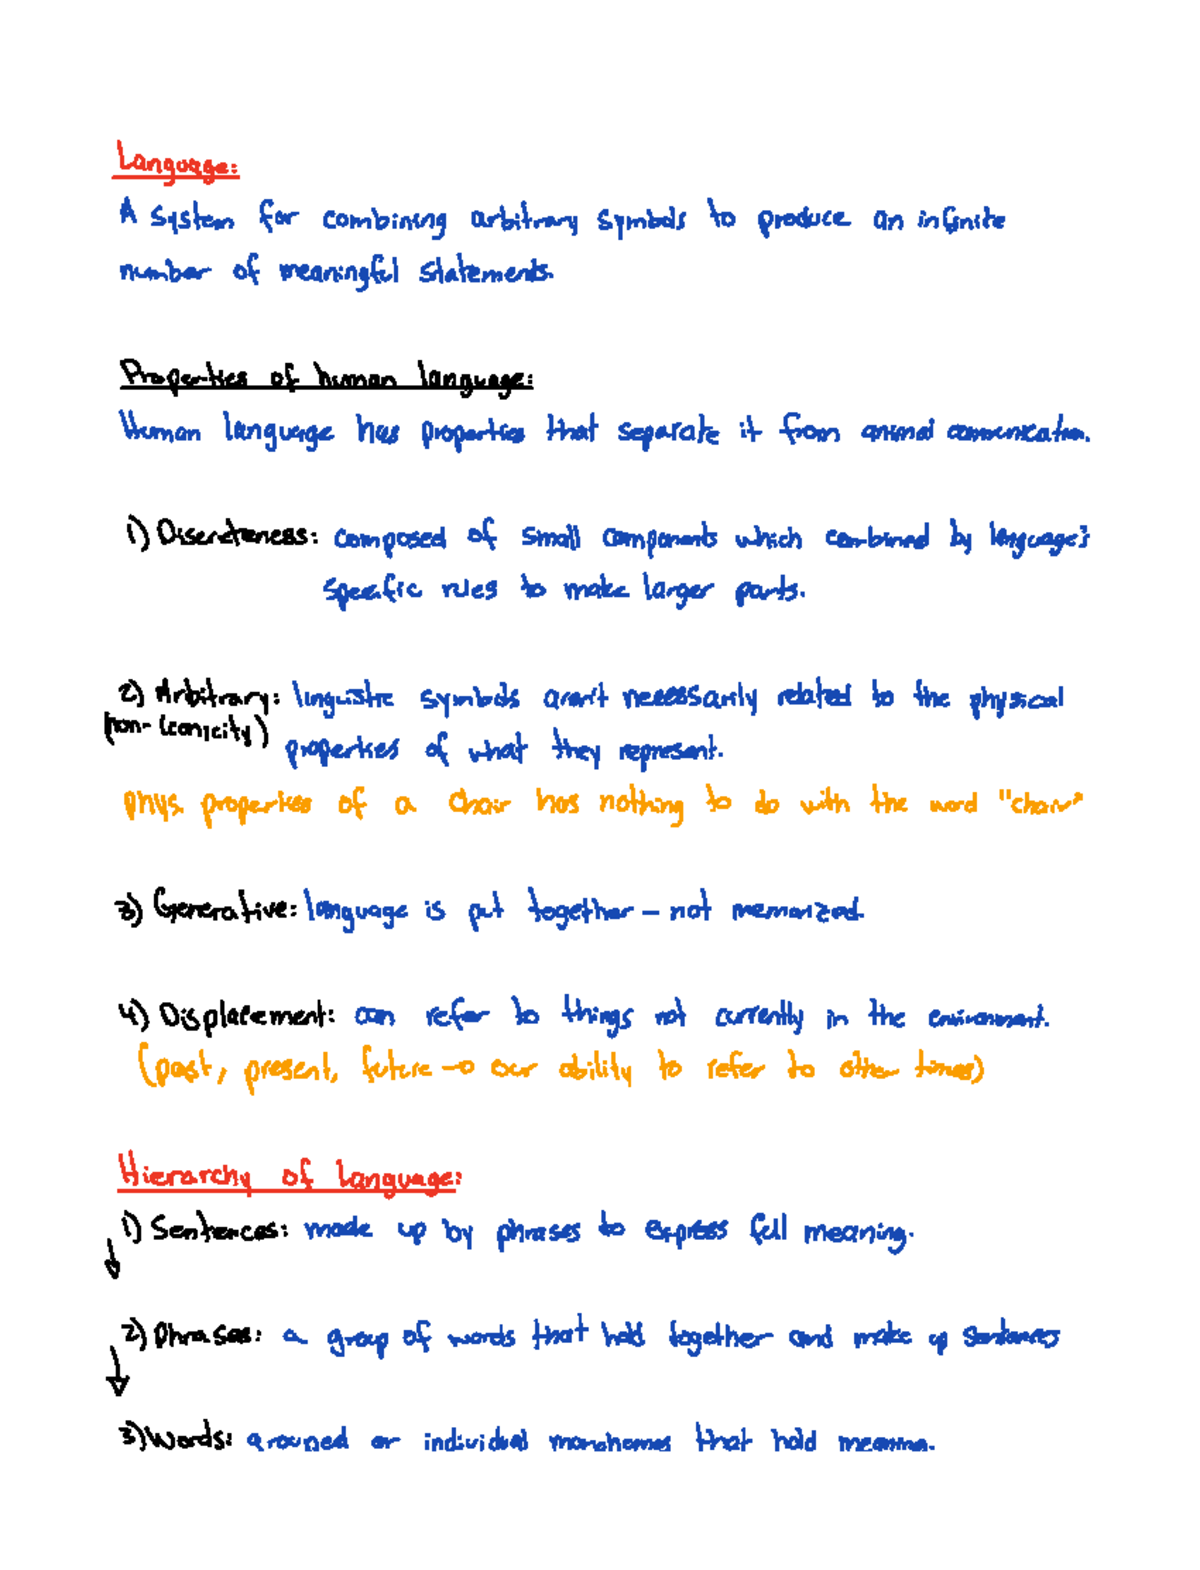 Language:
A system for combining arbitrary symbols to produce an infinite
number of meaningful statements.
Properties of human language:
Human language has properties that separate it from animal communication.
1) Discreteness: composed of small components which combined by language's
specific rules to make larger parts.
2) Arbitrary: linguistic symbols aren't necessarily related to the physical
(non-iconicity) properties of what they represent.
phys. properties of a chair has nothing to do with the word "chair"
3) Generative: language is put together - not memorized.
4) Displacement: can refer to things not currently in the environment.
(past, present, future → our ability to refer to other times)
Hierarchy of language:
1) Sentences: made up by phrases to express full meaning.
2) Phrases: a group of words that hold together and make up sentences
3) Words: grouped or individual morphemes that hold meaning.